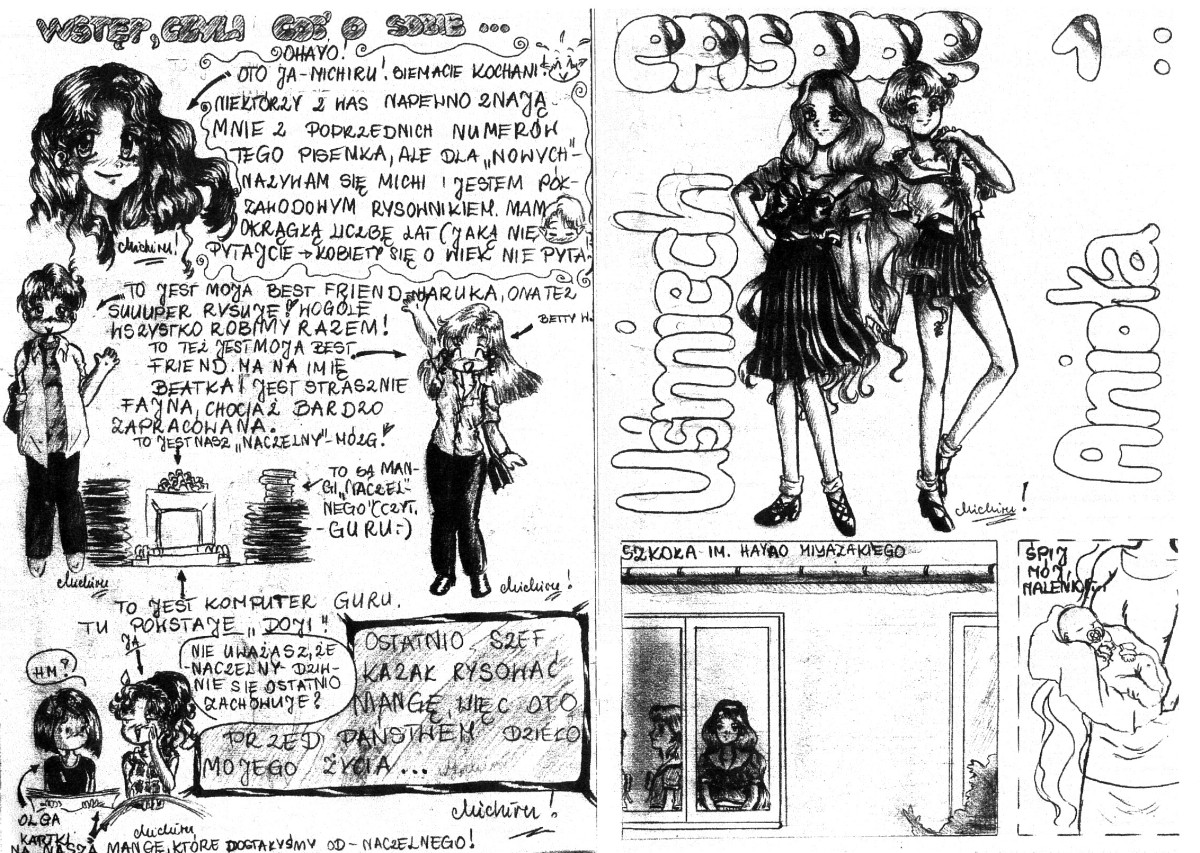 WSTĘP, CZYLI COŚ O SOBIE ...
OHAYO!
OTO JA-MICHIRU! SIEMACIE KOCHANI!
NIEKTÓRZY Z WAS NAPEWNO ZNAJĄ
MNIE Z POPRZEDNICH NUMERÓW
TEGO PISEMKA, ALE DLA „NOWYCH"-
NAZYWAM SIĘ MICHI I JESTEM PÓŁ-
ZAWODOWYM RYSOWNIKIEM. MAM
OKRĄGŁĄ LICZBĘ LAT (JAKĄ NIE
PYTAJCIE → KOBIETY SIĘ O WIEK NIE PYTA.
Michiru!
TO JEST MOJA BEST FRIEND-HARUKA, ONA TEŻ
SUUUPER RYSUJE! WOGÓLE
WSZYSTKO ROBIMY RAZEM!
BETTY W.
TO TEŻ JEST MOJA BEST
FRIEND. MA NA IMIĘ
BEATKA! JEST STRASZNIE
FAJNA, CHOCIAŻ BARDZO
ZAPRACOWANA.
TO JEST NASZ „NACZELNY"-MÓZG!
TO SĄ MAN-
GI „NACZEL-
NEGO" (CZYT.
-GURU:-)
Michiru
Michiru!
TO JEST KOMPUTER GURU.
TU POWSTAJE „DOJI"
JA
HM?
NIE UWAŻASZ, ŻE
NACZELNY DZIW-
NIE SIĘ OSTATNIO
ZACHOWUJE?
OSTATNIO SZEF
KAZAŁ RYSOWAĆ
MANGĘ, WIĘC OTO
PRZED PAŃSTWEM DZIEŁO
MOJEGO ŻYCIA...
Michiru!
OLGA
Michiru
KARTKI
NA NASZĄ MANGĘ, KTÓRE DOSTAŁYŚMY OD - NACZELNEGO!
EPISODE 1:
Uśmiech
Anioła
Michiru!
SZKOŁA IM. HAYAO MIYAZAKIEGO
ŚPIJ
MÓJ,